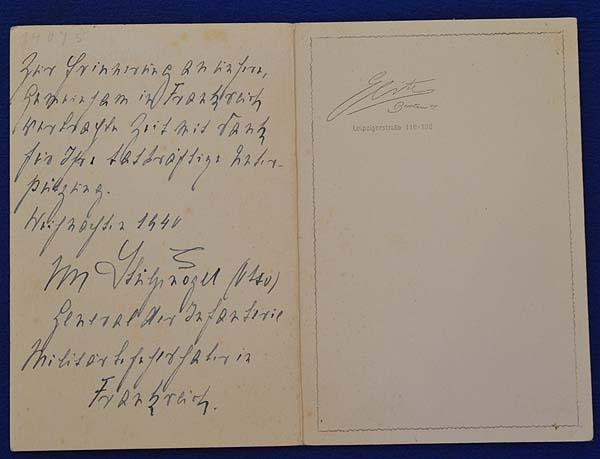 Zur Erinnerung an unsere,
gemeinsam in Frankreich
verbrachte Zeit mit Dank
für Ihre tatkräftige Unter-
stützung.
Weihnachten 1940
Stülpnagel (Otto)
General der Infanterie
Militärbefehlshaber in
Frankreich.
Berlin W
Leipzigerstraße 119-120